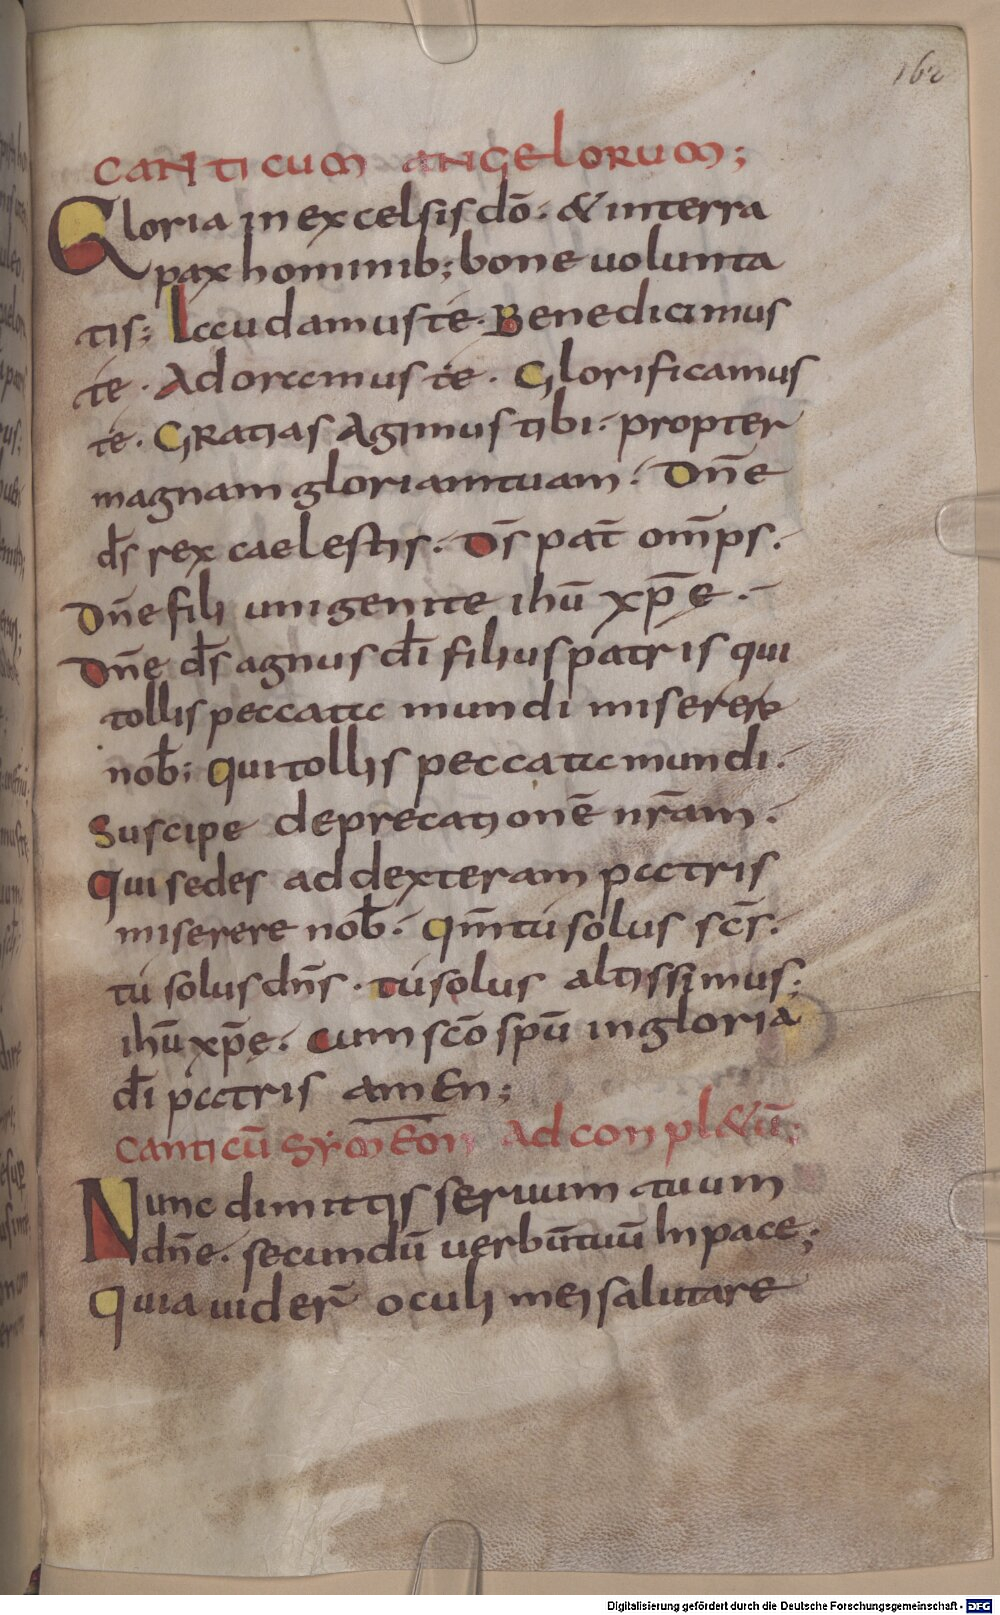 162
CANTICUM ANGELORUM;
Gloria in excelsis dō. & in terra
pax hominib; bone uolunta
tis; Laudamus té. Benedicimus
té. Adoramus té. Glorificamus
té. GRatias Agimus tibi. propter
magnam gloriam tuam. Dn̄e
d̄s rex caelestis. D̄s pat̄ om̄ps.
Dn̄e fili unigenite ihū xp̄e.
Dn̄e d̄s agnus dī filius patris qui
tollis peccata mundi miserere
nob̄; Qui tollis peccata mundi.
Suscipe deprecationē nr̄am.
Qui sedes ad dexteram patris
miserere nob̄. Qm̄ tú solus sc̄s.
tú solus dn̄s. tú solus altissimus;
ihū xp̄e. Cum sc̄o spū in gloria
dī patris amEn;
Canticū SymEon Ad conpl&ū;
Nunc dimittis seruum tuum
dn̄e. secundū uerbū tuū In pace;
Quia uider̄ oculi mei salutare
Digitalisierung gefördert durch die Deutsche Forschungsgemeinschaft - DFG